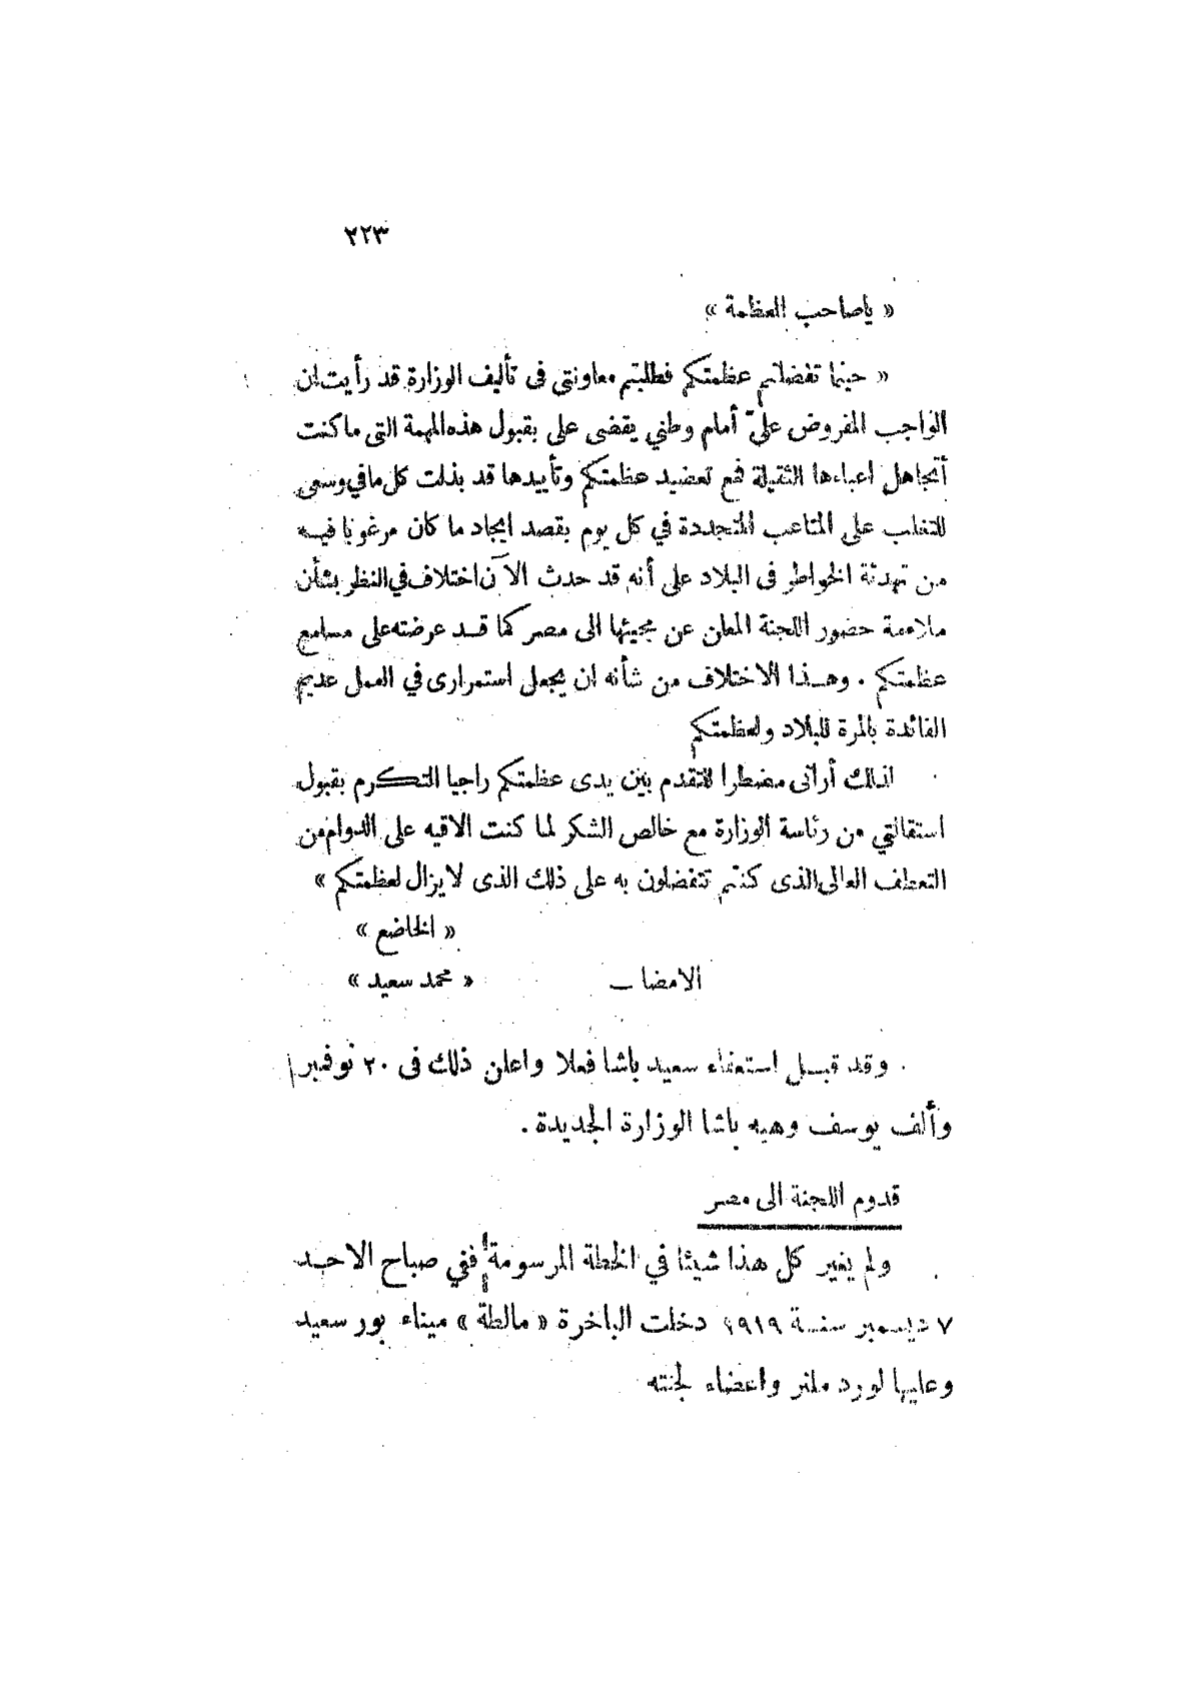 ٢٢٣
« ياصاحب العظمة »
« حينما تفضلتم عظمتكم فطلبتم معاونتى فى تأليف الوزارة قد رأيت ان
الواجب المفروض علىّ أمام وطني يقضى على بقبول هذه المهمة التى ما كنت
أتجاهل اعباءها الثقيلة فمع تعضيد عظمتكم وتأييدها قد بذلت كل مافي وسعى
للتغلب على المتاعب المتجددة في كل يوم بقصد ايجاد ما كان مرغوبا فيه
من تهدئة الخواطر فى البلاد على أنه قد حدث الآن اختلاف في النظر بشأن
ملاءمة حضور اللجنة المعلن عن مجيئها الى مصر كما قد عرضته على مسامع
عظمتكم . وهذا الاختلاف من شأنه ان يجعل استمرارى في العمل عديم
الفائدة بالمرة للبلاد ولعظمتكم
لذلك أرانى مضطرا للتقدم بين يدى عظمتكم راجيا التكرم بقبول
استقالتي من رئاسة الوزارة مع خالص الشكر لما كنت الاقيه على الدوام من
التعطف العالى الذى كنتم تتفضلون به على ذلك الذى لا يزال لعظمتكم »
« الخاضع »
الامضا ــ « محمد سعيد »
وقد قبل استعفاء سعيد باشا فعلا واعلن ذلك فى ٢٠ نوفمبر
وألف يوسف وهبه باشا الوزارة الجديدة .
قدوم اللجنة الى مصر
ولم يغير كل هذا شيئا في الخطة المرسومة ففي صباح الاحد
٧ ديسمبر سنة ١٩١٩ دخلت الباخرة « مالطة » ميناء بور سعيد
وعليها لورد ملنر واعضاء لجنته